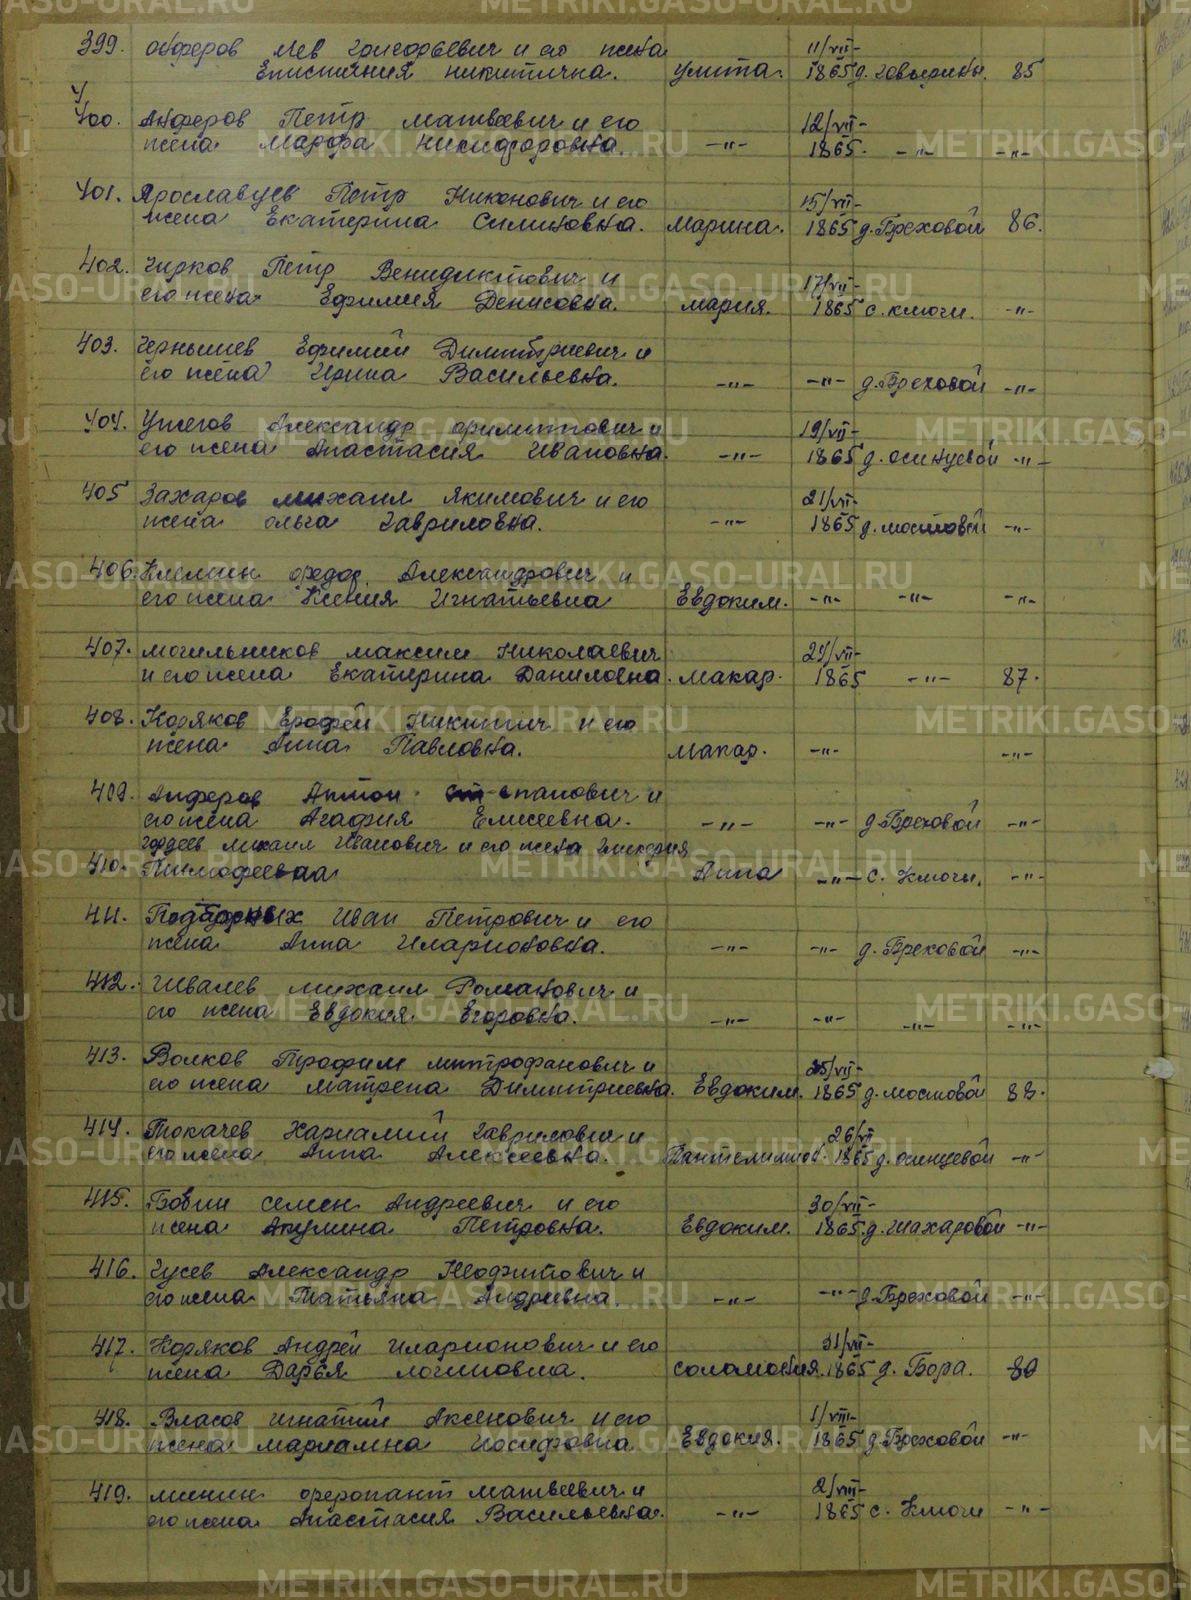 399. Анферов Лев Григорьевич и его жена
Епистиния Никитична. Улита. 11/VII-1865 д. Говырины. 85
400. Анферов Петр Матвеевич и его
жена Марфа Никифоровна. -"- 12/VII-1865. -"- -"-
401. Ярославцев Петр Никонович и его
жена Екатерина Симановна. Марина. 15/VII-1865 д. Бреховой 86.
402. Чирков Петр Венидиктович и
его жена Ефимия Денисовна. Мария. 17/VII-1865 с. Ключи. -"-
403. Чернышев Ефимий Димитриевич и
его жена Ирина Васильевна. -"- -"- д. Бреховой -"-
404. Ужегов Александр Филиппович и
его жена Анастасия Ивановна. -"- 19/VII-1865 д. Осинцевой -"-
405 Захаров Михаил Якимович и его
жена Ольга Гавриловна. -"- 21/VII-1865 д. Мостовой -"-
406. Клемин Федор Александрович и
его жена Ксения Игнатьевна Евдоким. -"- -"- -"-
407. Могильников Максим Николаевич
и его жена Екатерина Даниловна. Макар. 24/VII-1865 -"- 87.
408. Коряков Ерофей Никитич и его
жена Анна Павловна. Макар. -"- -"-
409. Анферов Антон Степанович и
его жена Агафия Елисеевна. -"- -"- д. Бреховой -"-
Гордеев Михаил Иванович и его жена Гликерия
410. Тимофеевна Анна -"- с. Ключи. -"-
411. Подгорных Иван Петрович и его
жена Анна Иларионовна. -"- -"- д. Бреховой -"-
412. Швалев Михаил Романович и
его жена Евдокия Егоровна. -"- -"- -"- -"-
413. Волков Трофим Митрофанович и
его жена Матрена Димитриевна. Евдоким. 25/VII-1865 д. Мостовой 88.
414. Токачев Харлампий Гаврилович и
его жена Анна Алексеевна. 26/VII 1865 д. Осинцевой -"-
415. Бовин Семен Андреевич и его
жена Акулина Петровна. Евдоким. 30/VII-1865. д. Шахаровой -"-
416. Гусев Александр Неофитович и
его жена Татьяна Андреевна. -"- -"- д. Бреховой -"-
417. Коряков Андрей Иларионович и его
жена Дарья Логиновна. Соломония. 31/VII-1865 д. Бора. 89
418. Власов Игнатий Аксенович и его
жена Мариамна Иосифовна Евдокия. 1/VIII-1865 д. Бреховой -"-
419. Минин Ферапонт Матвеевич и
его жена Анастасия Васильевна. -"- 2/VIII-1865 с. Ключи -"-
METRIKI.GASO-URAL.RU